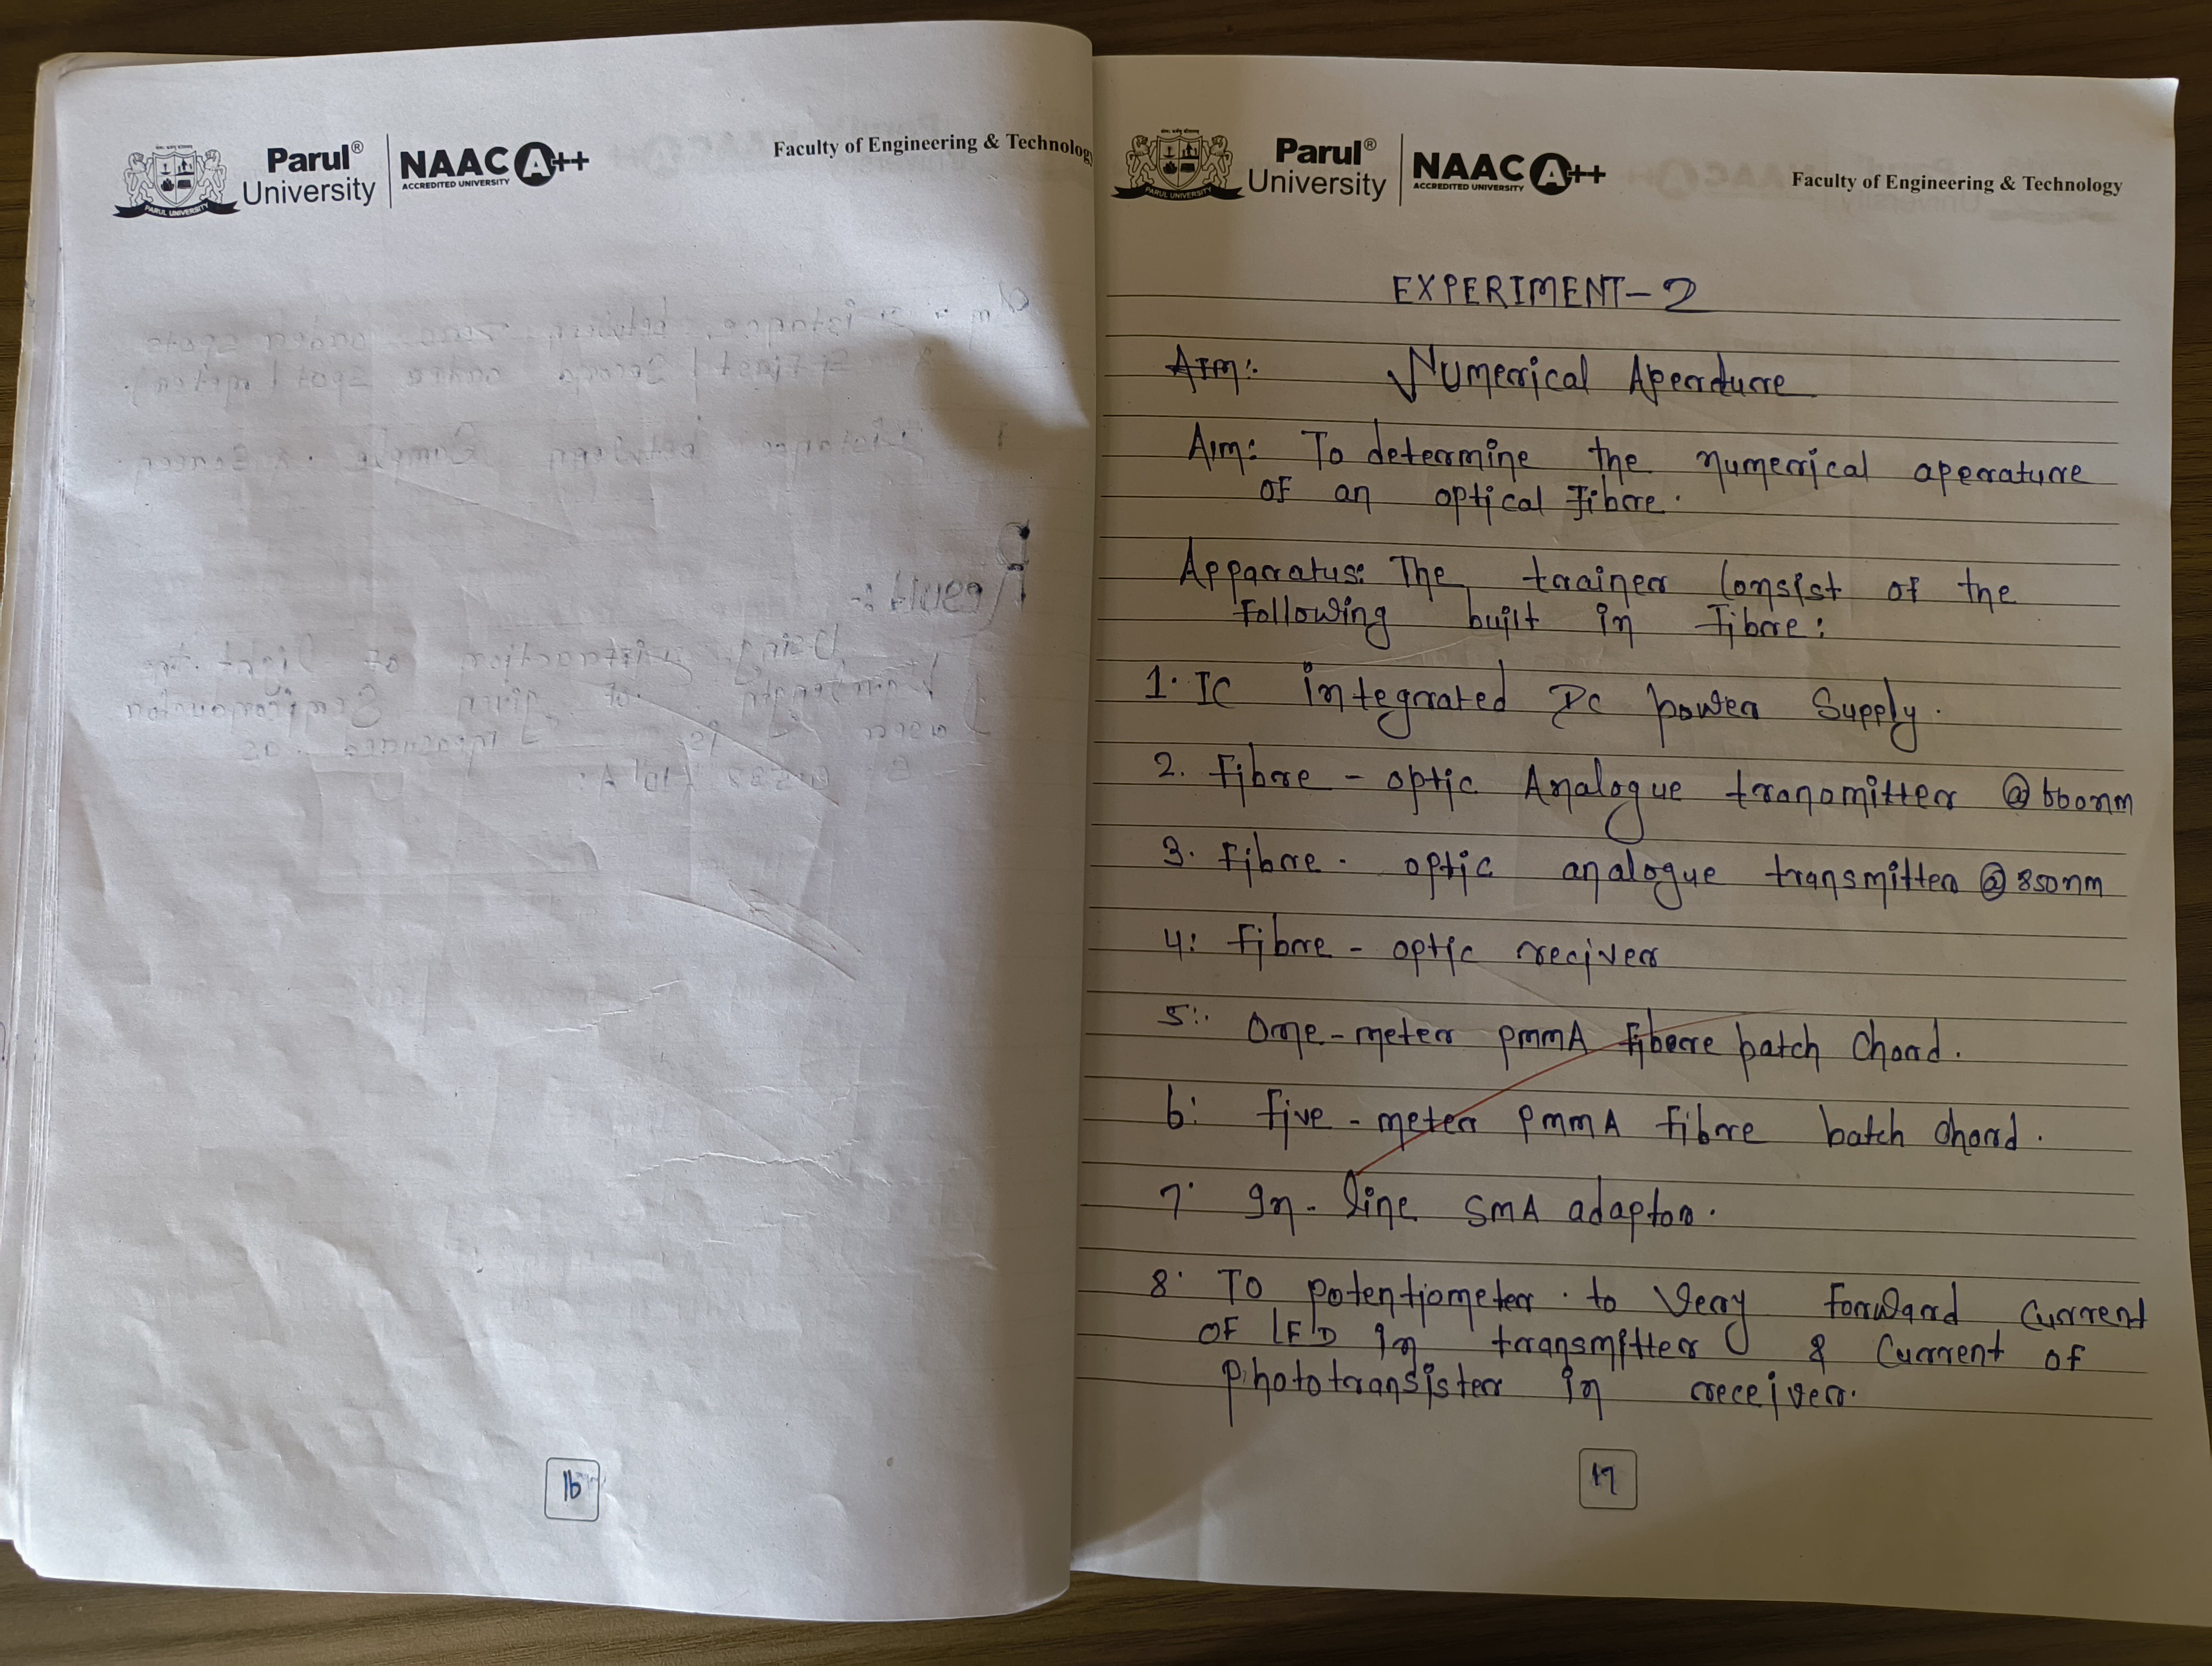 Parul®
University
NAAC A++
ACCREDITED UNIVERSITY
PARUL UNIVERSITY
Faculty of Engineering & Technology
16
Parul®
University
NAAC A++
ACCREDITED UNIVERSITY
PARUL UNIVERSITY
Faculty of Engineering & Technology
EXPERIMENT-2
AIM: Numerical Aperdure
AIM: To determine the numerical aperature
OF an optical Fibre.
Apparatus: The trainer Consist of the
Following built in Fibre:
1. IC integrated DC power Supply.
2. Fibre - optic Analogue transmitter @ 660nm
3. Fibre - optic analogue transmitter @ 850nm
4: Fibre - optic reciver
5: One-meter PMMA Fibere patch Chord.
6: Five-meter PMMA Fibre batch chord.
7. In-line SMA adaptor.
8. TO potentiometer. to Very forward Current
OF LED in transmitter & Current of
Phototransister in receiver.
17